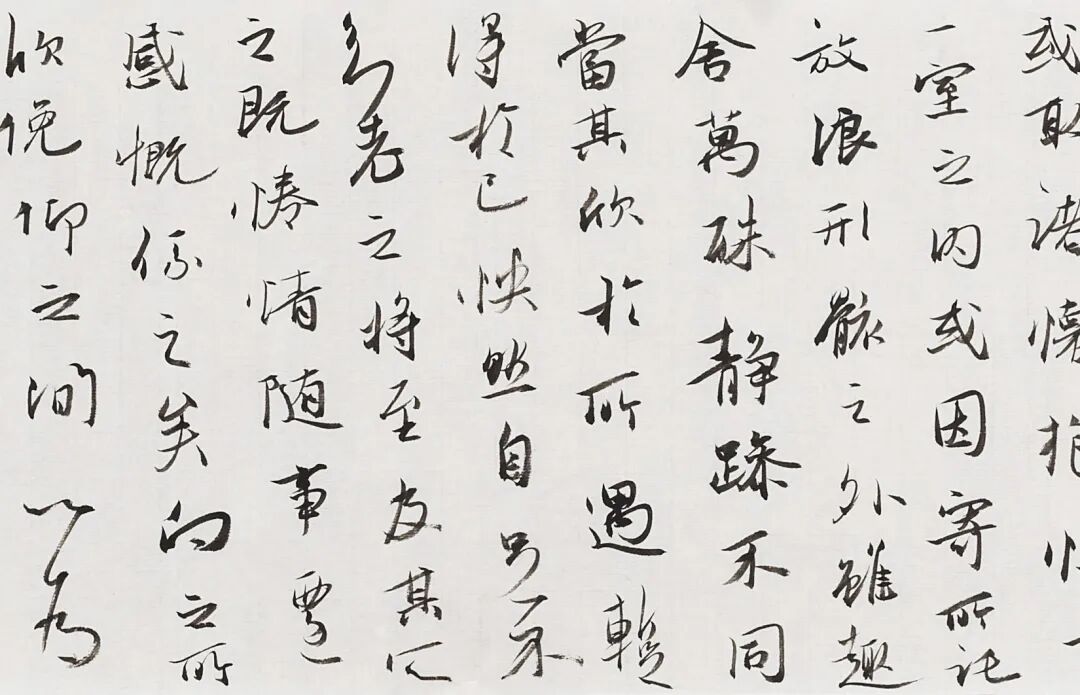 或取諸懷抱悟
一室之内或因寄所託
放浪形骸之外雖趣
舍萬殊静躁不同
當其欣於所遇暫
得於己怏然自足不
知老之將至及其所
之既惓情随事遷
感慨係之矣向之所
欣俛仰之間以為